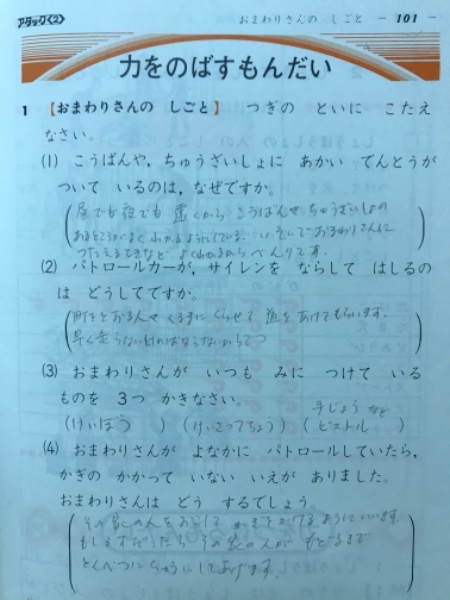 アタック〈2〉 おまわりさんの しごと — 101 —
力をのばすもんだい
1 【おまわりさんの しごと】 つぎの といに こたえ
なさい.
(1) こうばんや, ちゅうざいしょに あかい でんとうが
ついて いるのは, なぜですか.
昼でも夜でも 遠くから こうばんや ちゅうざいしょの
あるところが よく わかるようにしている. おまわりさんに
つたえるときなど よくわかるから べんりです.
(2) パトロールカーが, サイレンを ならして はしるの
は どうしてですか.
町をとおる人や くるまに しらせて 道をあけてもらいます.
早く走らなければならないからです
(3) おまわりさんが いつも みに つけて いる
ものを 3つ かきなさい.
手じょう など
(けいぼう) (けいさつてちょう) (ピストル)
(4) おまわりさんが よなかに パトロールしていたら,
かぎの かかって いない いえが ありました.
おまわりさんは どう するでしょう.
その家の人をおこして かぎをかけるようにいいます.
もしるすだったら その家の人が もどるまで
とくべつにちゅういしてあげます.